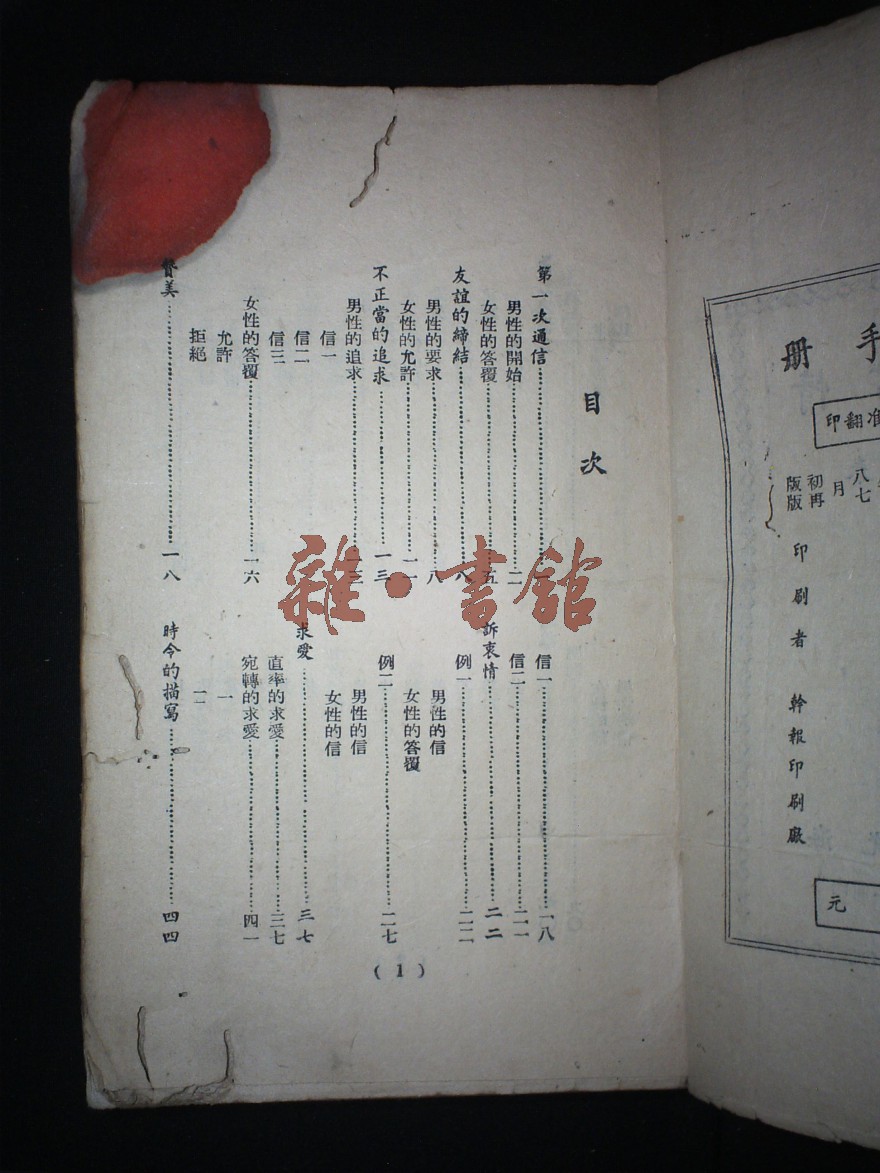 手冊
准翻印
八七
月
初再
版版
印刷者 幹報印刷廠
元
目次
第一次通信……
男性的開始……二
女性的答覆……五
友誼的締結……八
男性的要求……八
女性的允許……一一
不正當的追求……一三
男性的追求……一三
信一
信二
信三
女性的答覆……一六
允許
拒絕
贊美……一八
信一……一八
信二……二一
訴衷情……二二
例一……二二
男性的信
女性的答覆
例二……二七
男性的信
女性的信
求愛……三七
直率的求愛……三七
宛轉的求愛……四一
一
二
時令的描寫……四四
(1)
雜·書館